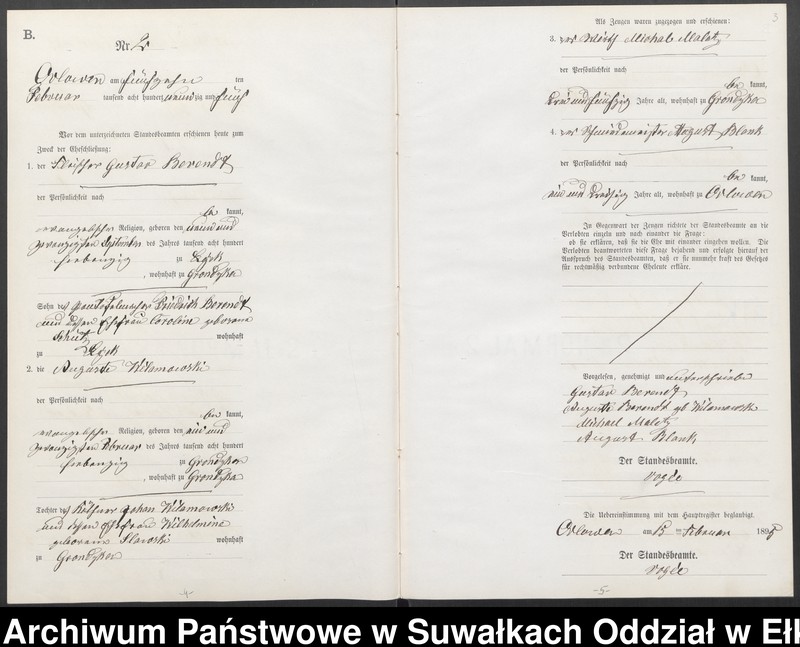 B.
Nr. 2
Orlowen am fünfzehn ten
Februar tausend acht hundert neunzig und fünf
Vor dem unterzeichneten Standesbeamten erschienen heute zum
Zweck der Eheschließung:
1. der Fleischer Gustav Berendt
der Persönlichkeit nach
be kannt,
evangelischer Religion, geboren den neun und
zwanzigsten September des Jahres tausend acht hundert
siebenzig zu Lyck
, wohnhaft zu Grondzken
Sohn des Friedrich Berendt
und dessen Ehefrau Caroline geborene
wohnhaft
zu Lyck
2. die Auguste Wilamowski
der Persönlichkeit nach
be kannt,
evangelischer Religion, geboren den ein und
zwanzigsten Februar des Jahres tausend acht hundert
siebenzig zu Grondzken
, wohnhaft zu Grondzken
Tochter des Käthners Johan Wilamowski
und dessen Ehefrau Wilhelmine
geborene Slawski wohnhaft
zu Grondzken
-4-
3
Als Zeugen waren zugezogen und erschienen:
3. der Wirth Michael Malotz
der Persönlichkeit nach
be kannt,
drei und fünfzig Jahre alt, wohnhaft zu Grondzken
4. der Schmiedemeister August Blank
der Persönlichkeit nach
be kannt,
ein und dreißig Jahre alt, wohnhaft zu Orlowen
In Gegenwart der Zeugen richtete der Standesbeamte an die
Verlobten einzeln und nach einander die Frage:
ob sie erklären, daß sie die Ehe mit einander eingehen wollen. Die
Verlobten beantworteten diese Frage bejahend und erfolgte hierauf der
Ausspruch des Standesbeamten, daß er sie nunmehr kraft des Gesetzes
für rechtmäßig verbundene Eheleute erkläre.
Vorgelesen, genehmigt und unterschrieben
Gustav Berendt
Auguste Berendt gb Wilamowski
Michael Malotz
August Blank
Der Standesbeamte.
Vogée
Die Uebereinstimmung mit dem Hauptregister beglaubigt.
Orlowen am 15 ten Februar 1895
Der Standesbeamte.
Vogée
-5-
Archiwum Państwowe w Suwałkach Oddział w Ełk